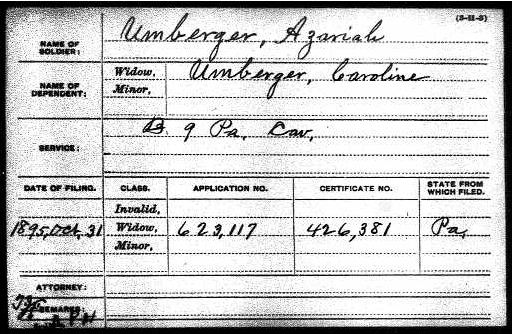 (3-11-3)
NAME OF SOLDIER: Umberger, Azariah
NAME OF DEPENDENT: Widow, Umberger, Caroline
Minor,
SERVICE: B 9 Pa. Cav,
DATE OF FILING. CLASS. APPLICATION NO. CERTIFICATE NO. STATE FROM WHICH FILED.
Invalid,
1895, Oct. 31 Widow, 623,117 426,381 Pa,
Minor,
ATTORNEY:
REMARKS